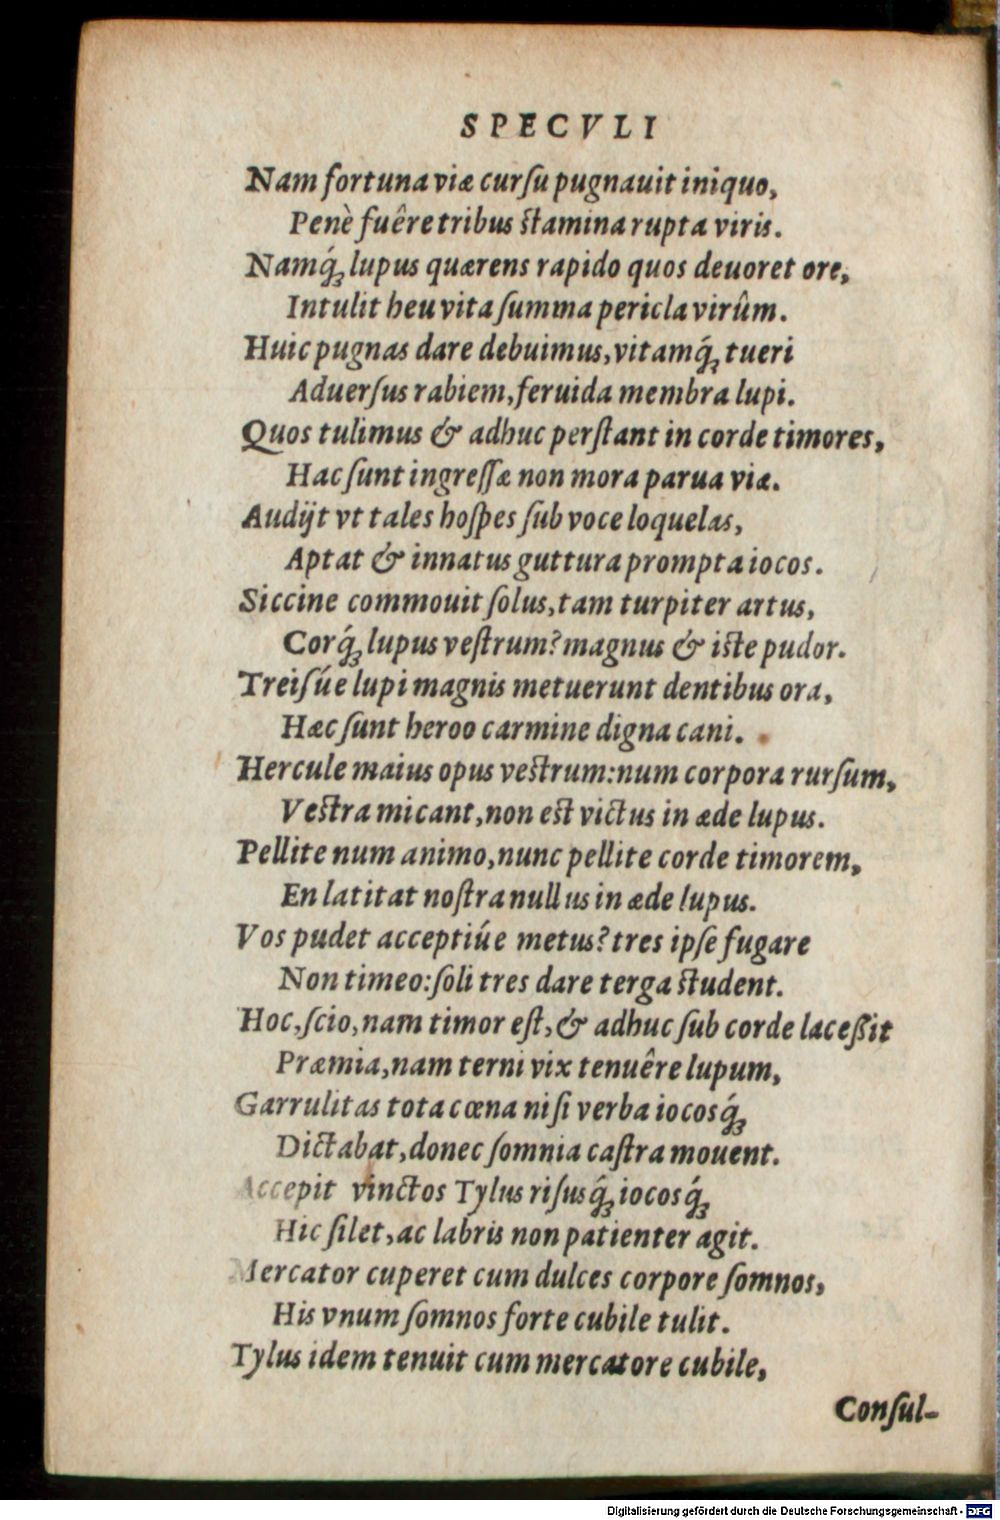 SPECVLI
Nam fortuna viæ curſu pugnauit iniquo,
Penè fuêre tribus ſtamina rupta viris.
Namq́ꝫ lupus quærens rapido quos deuoret ore,
Intulit heu vita ſumma pericla virûm.
Huic pugnas dare debuimus, vitamq́ꝫ tueri
Aduerſus rabiem, feruida membra lupi.
Quos tulimus & adhuc perſtant in corde timores,
Hac ſunt ingreſſæ non mora parua viæ.
Audijt vt tales hoſpes ſub voce loquelas,
Aptat & innatus guttura prompta iocos.
Siccine commouit ſolus, tam turpiter artus,
Corq́ꝫ lupus veſtrum? magnus & iſte pudor.
Treiſúe lupi magnis metuerunt dentibus ora,
Hæc ſunt heroo carmine digna cani.
Hercule maius opus veſtrum: num corpora rurſum,
Veſtra micant, non eſt victus in æde lupus.
Pellite num animo, nunc pellite corde timorem,
En latitat noſtra nullus in æde lupus.
Vos pudet acceptiúe metus? tres ipſe fugare
Non timeo: ſoli tres dare terga ſtudent.
Hoc, ſcio, nam timor eſt, & adhuc ſub corde laceßit
Præmia, nam terni vix tenuêre lupum,
Garrulitas tota cœna niſi verba iocosq́ꝫ
Dictabat, donec ſomnia caſtra mouent.
Accepit vinctos Tylus riſusq́ꝫ iocosq́ꝫ
Hic ſilet, ac labris non patienter agit.
Mercator cuperet cum dulces corpore ſomnos,
His vnum ſomnos forte cubile tulit.
Tylus idem tenuit cum mercatore cubile,
Conſul-
Digitalisierung gefördert durch die Deutsche Forschungsgemeinschaft - DFG